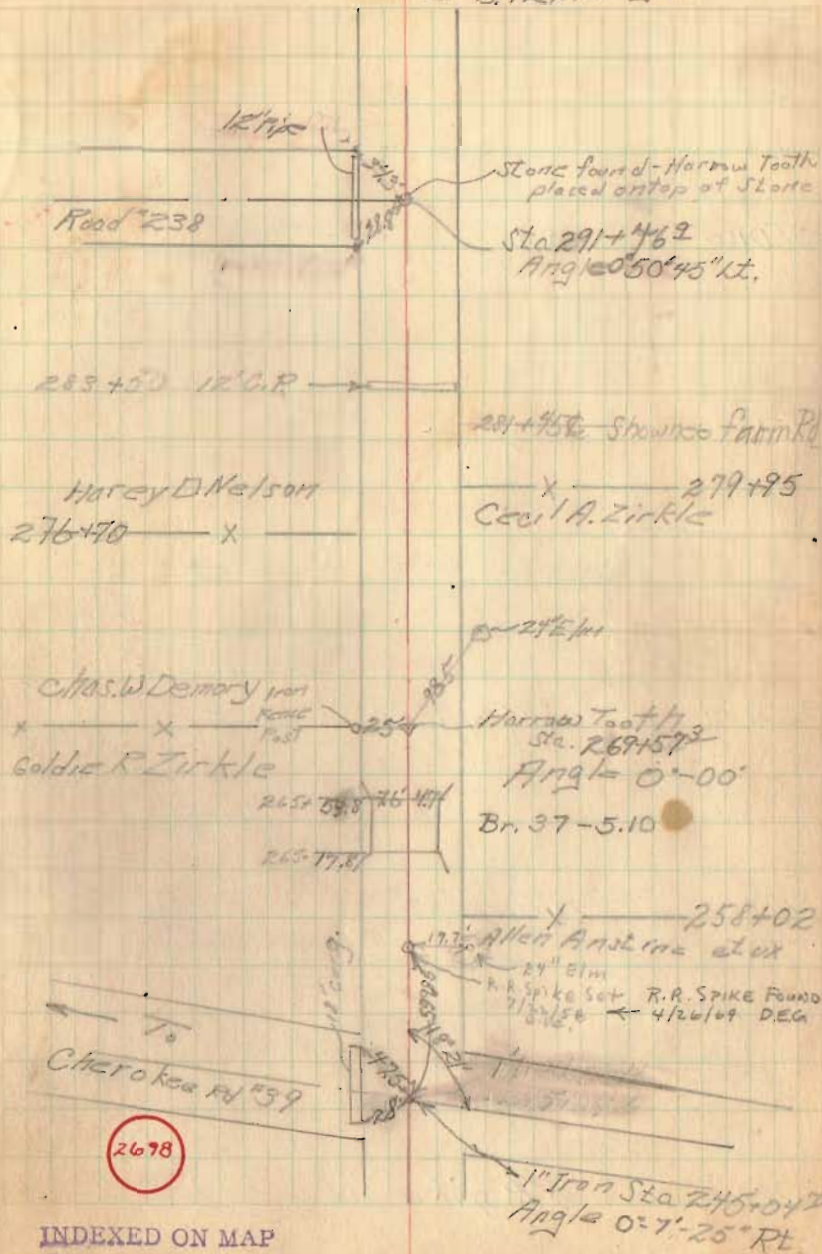 12" Pipe
34.5'
28.8'
Stone found - Harrow Tooth
placed on top of Stone
Road #238
Sta 291+46⁹
Angle 0°50'45" Lt.
283+50 12" C.P.
281+45 Shawnee Farm Rd
Harey D Nelson
276+70 X
X 279+95
Cecil A. Zirkle
24" Elm
28.5'
Chas. W Demory
Iron
Fence
Post
25'
X X
Goldie R Zirkle
Harrow Tooth
Sta. 269+57³
Angle 0°-00'
265+
265+77.8
Br. 37-5.10
X 258+02
19.7'
Allen Anstine et ux
24" Elm
R.R. Spike Set
R.R. SPIKE FOUND
4/26/69 D.E.G
18" Corg.
To
Cherokee Rd #39
47.5'
28'
48°21'
1" Iron Sta 245+04²
Angle 0°-7'-25" Rt.
2698
INDEXED ON MAP